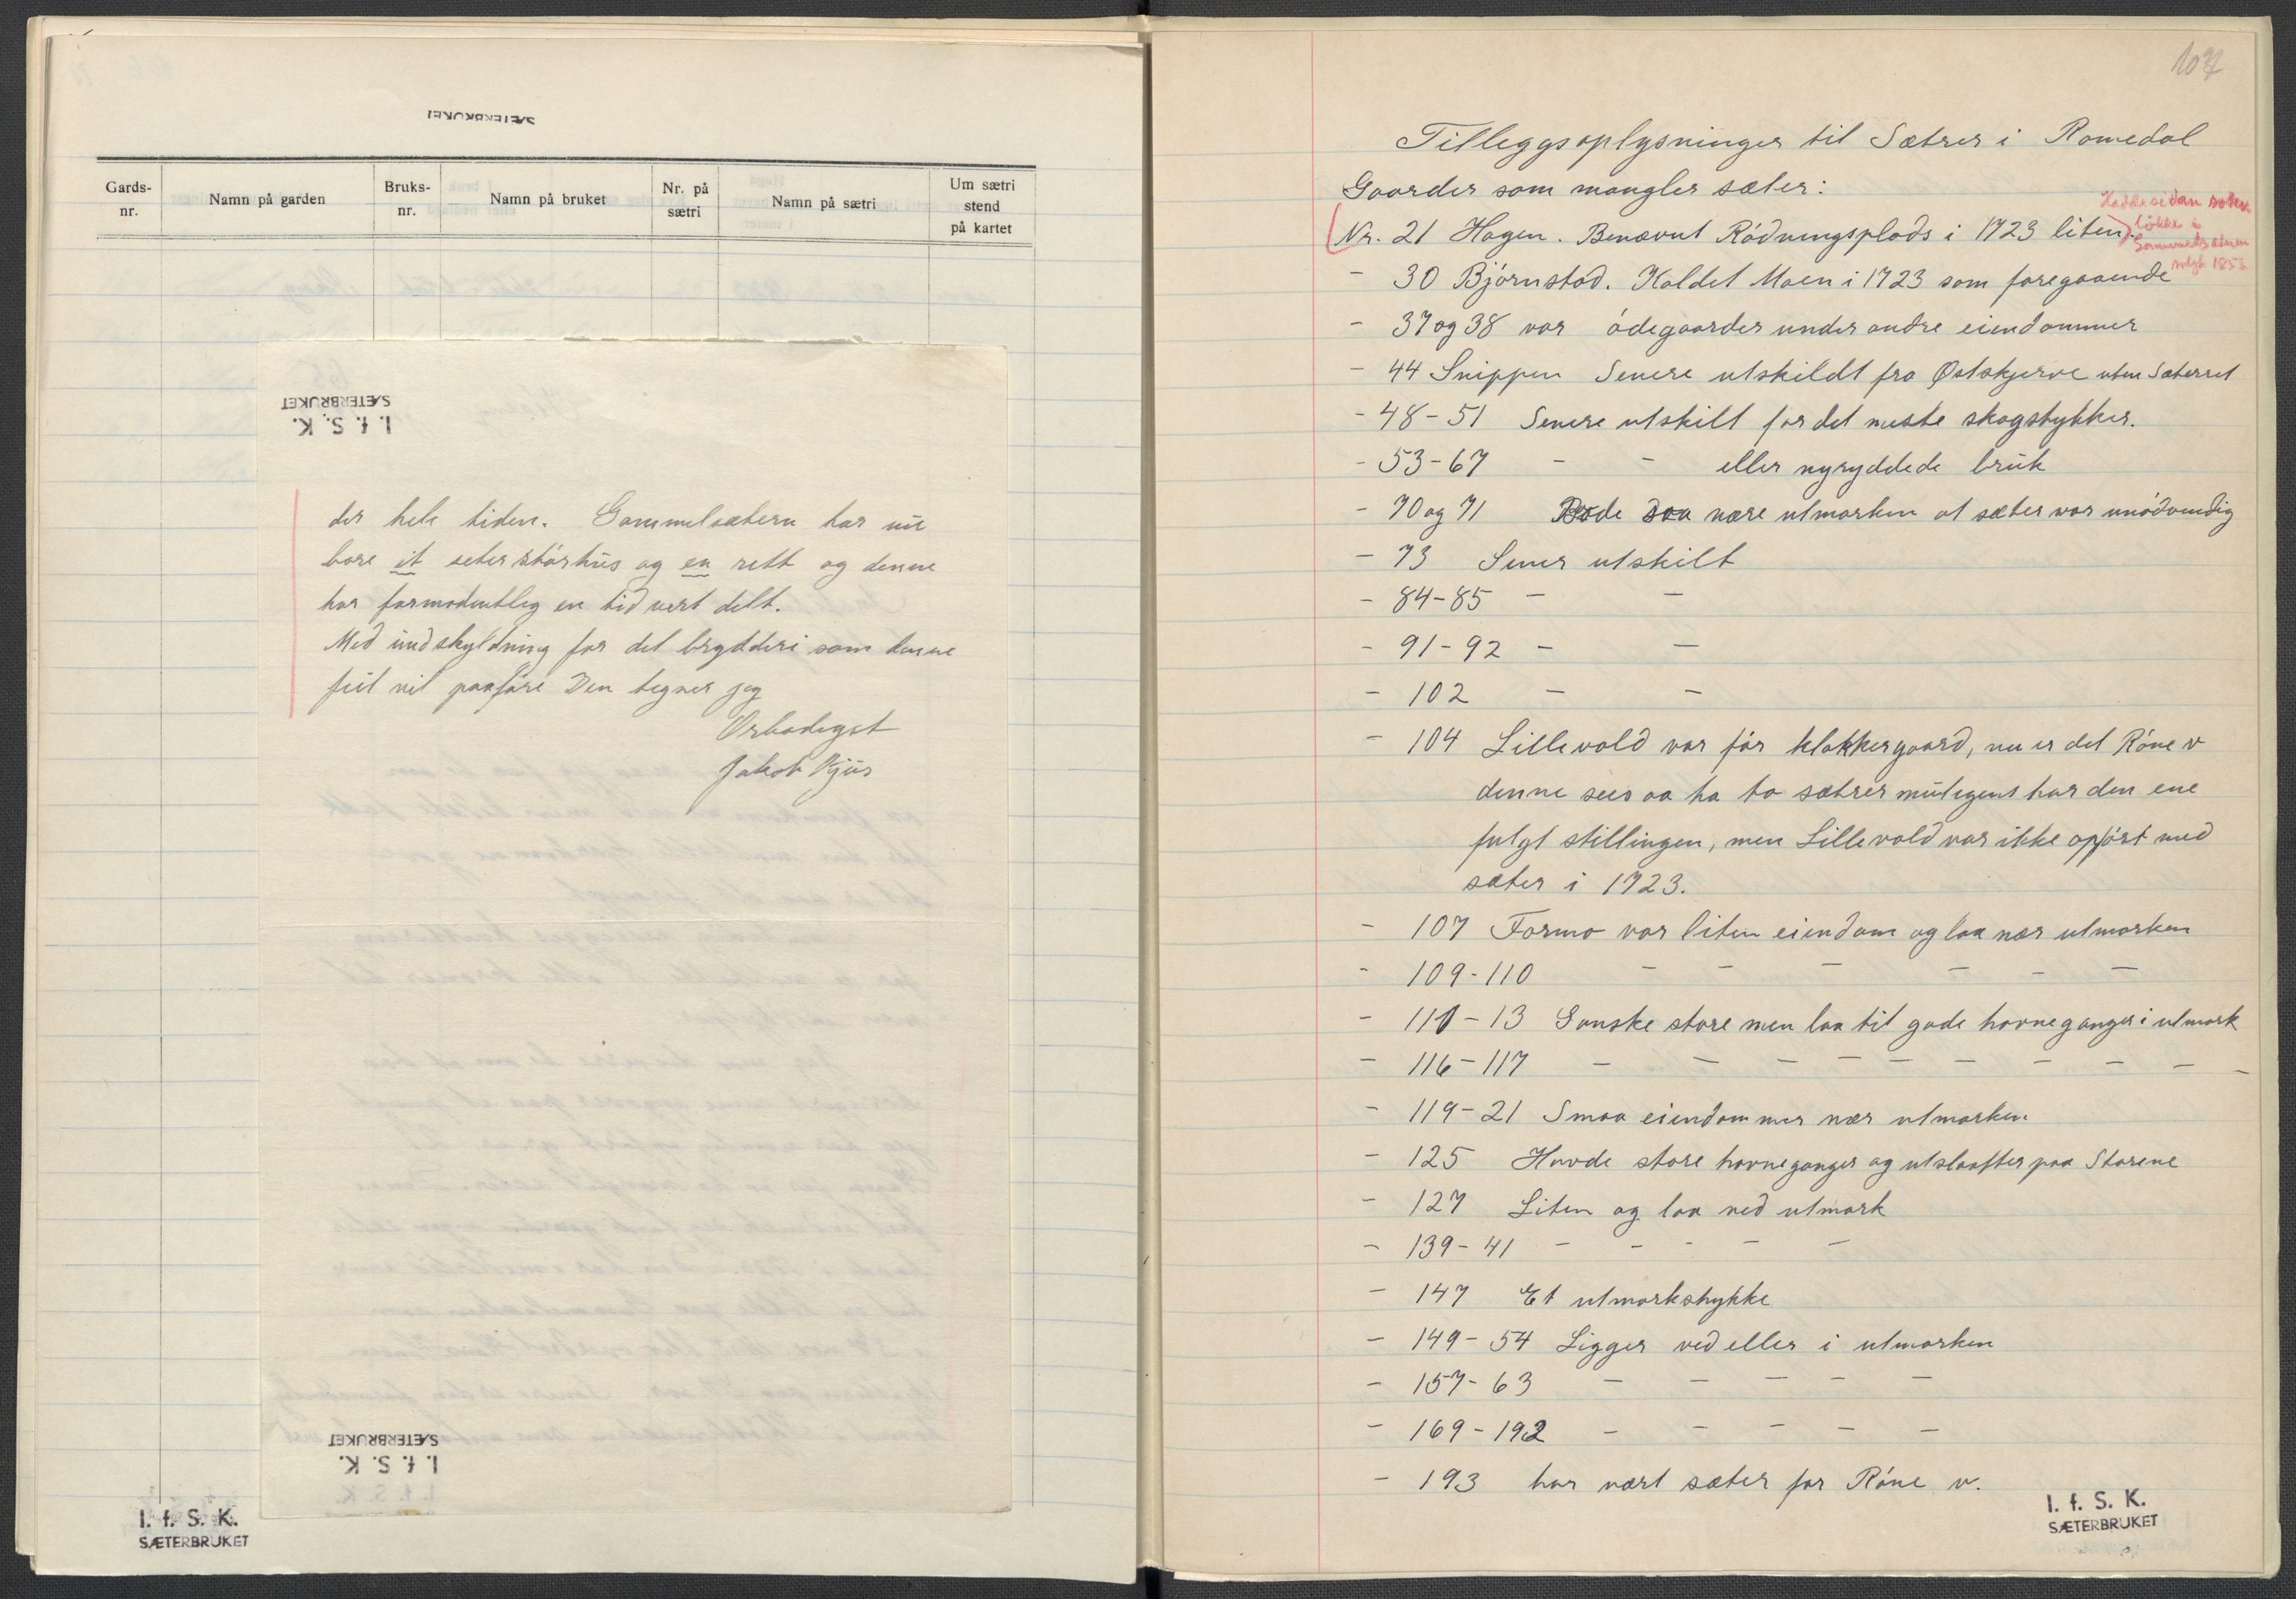 SÆTERBRUKET
Gards-
nr.
Namn på garden
Bruks-
nr.
Namn på bruket
Nr. på
sætri
Namn på sætri
Um sætri
stend
på kartet
I. f. S. K.
SÆTERBRUKET
der hele tiden. Gammelsætern har nu
bare et seterstørhus og en rett og denne
har formodentlig en tid vert delt.
Med undskyldning for det brydderi som denne
feil vil paaføre Dem tegner jeg
Ærbødigst
Jakob Kjus
I. f. S. K.
SÆTERBRUKET
I. f. S. K.
SÆTERBRUKET
107
Tilleggsoplysninger til Sætrer i Romedal
Gaarder som mangler sæter:
Nr. 21 Hagen. Benævnt Rödningsplads i 1723 liten.
Hadde sidan
løkke i
solgt 1853
- 30 Björnstad. Kaldet Moen i 1723 som foregaaende
- 37 og 38 var ödegaarder under andre eiendommer
- 44 Snippen Senere utskildt fra Østskjerve uten Sæterret
- 48-51 Senere utskilt for det meste skogstykker.
- 53-67 - - eller nyryddede bruk
- 70 og 71 saa nære utmarken at sæter var unödvendig
- 73 Sener utskilt
- 84-85 - -
- 91-92 - -
- 102 - -
- 104 Lillevold var før klokkergaard, nu er det Röne v
denne sees aa ha to sætrer muligens har den ene
fulgt stillingen, men Lillevold var ikke opfört med
sæter i 1723.
- 107 Formo var liten eiendom og laa nær utmarken
- 109-110 - - - - - -
- 111-13 Ganske store men laa til gode havneganger i utmark
- 116-117 - - - - - - - - - -
- 119-21 Smaa eiendommer nær utmarken
- 125 Havde store havneganger og utslaatter paa Starene
- 127 Liten og laa ved utmark
- 139-41 - - - - -
- 147 Et utmarkstykke
- 149-54 Ligger ved eller i utmarken
- 157-63 - - - - -
- 169-192 - - - - -
- 193 har vært sæter for Röne v.
I. f. S. K.
SÆTERBRUKET